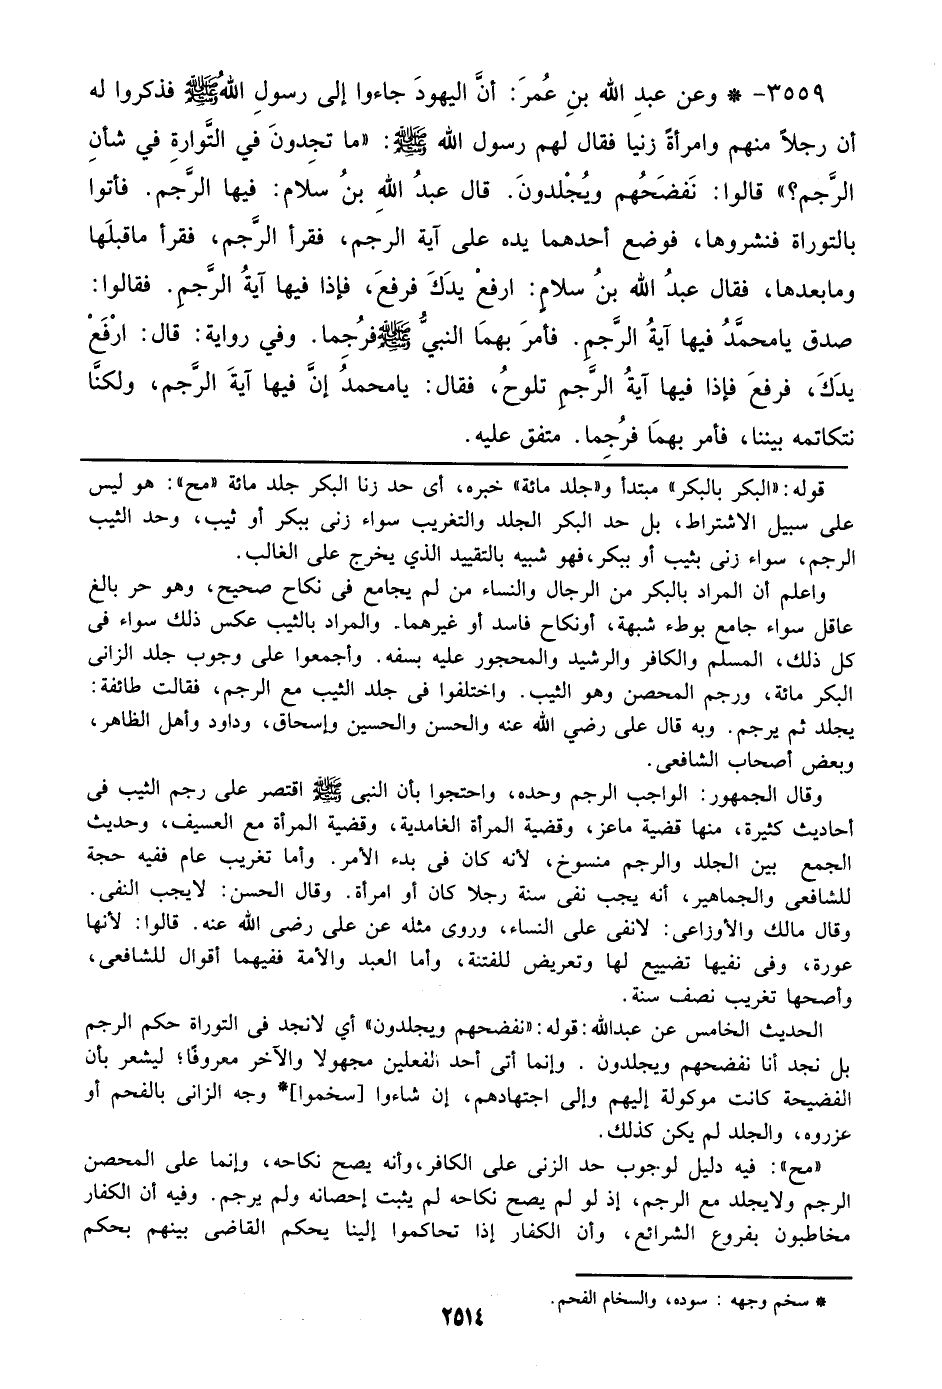 ٣٥٥٩- * وعن عبدِ الله بنِ عُمرَ: أنَّ اليهودَ جاءوا إلى رسولِ اللهُ ﷺ فذكروا له
أن رجلاً منهم وامرأةً زنيا فقال لهم رسول الله ﷺ: «ما تجدونَ في التَّوارةِ في شأنِ
الرَّجم؟» قالوا: نَفضَحُهم ويُجْلدونَ. قال عبدُ اللهِ بنُ سلام: فيها الرَّجم. فأتوا
بالتوراة فنشروها، فوضع أحدهما يده على آية الرجم، فقرأ الرَّجم، فقرأ ماقبلَها
ومابعدها، فقال عبدُ الله بنُ سلامٍ: ارفعْ يدَكَ فرفعَ، فإذا فيها آيةُ الرَّجم. فقالوا:
صدق يامحمَّدُ فيها آيةُ الرَّجمِ. فأمرَ بهمَا النبيُّ ﷺ فرُجِما. وفي رواية: قال: ارْفَعْ
يدَكَ، فرفعَ فإذا فيها آيةُ الرَّجمِ تلوحُ، فقال: يامحمدُ إنَّ فيها آيةَ الرَّجم، ولكنَّا
نتكاتمه بيننا، فأمر بهمَا فرُجِما. متفق عليه.
قوله: «البكر بالبكر» مبتدأ و«جلد مائة» خبره، أى حد زنا البكر جلد مائة «مح»: هو ليس
على سبيل الاشتراط، بل حد البكر الجلد والتغريب سواء زنى ببكر أو ثيب، وحد الثيب
الرجم، سواء زنى بثيب أو ببكر،فهو شبيه بالتقييد الذي يخرج على الغالب.
واعلم أن المراد بالبكر من الرجال والنساء من لم يجامع فى نكاح صحيح، وهو حر بالغ
عاقل سواء جامع بوطء شبهة، أونكاح فاسد أو غيرهما. والمراد بالثيب عكس ذلك سواء فى
كل ذلك، المسلم والكافر والرشيد والمحجور عليه بسفه. وأجمعوا على وجوب جلد الزانى
البكر مائة، ورجم المحصن وهو الثيب. واختلفوا فى جلد الثيب مع الرجم، فقالت طائفة:
يجلد ثم يرجم. وبه قال على رضي الله عنه والحسن والحسين وإسحاق، وداود وأهل الظاهر،
وبعض أصحاب الشافعى.
وقال الجمهور: الواجب الرجم وحده، واحتجوا بأن النبى ﷺ اقتصر على رجم الثيب فى
أحاديث كثيرة، منها قضية ماعز، وقضية المرأة الغامدية، وقضية المرأة مع العسيف، وحديث
الجمع بين الجلد والرجم منسوخ، لأنه كان فى بدء الأمر. وأما تغريب عام ففيه حجة
للشافعى والجماهير، أنه يجب نفى سنة رجلا كان أو امرأة. وقال الحسن: لايجب النفى.
وقال مالك والأوزاعى: لانفى على النساء، وروى مثله عن على رضى الله عنه. قالوا: لأنها
عورة، وفى نفيها تضييع لها وتعريض للفتنة، وأما العبد والأمة ففيهما أقوال للشافعى،
وأصحها تغريب نصف سنة.
الحديث الخامس عن عبدالله: قوله: «نفضحهم ويجلدون» أي لانجد فى التوراة حكم الرجم
بل نجد أنا نفضحهم ويجلدون . وإنما أتى أحد الفعلين مجهولا والآخر معروفًا؛ ليشعر بأن
الفضيحة كانت موكولة إليهم وإلى اجتهادهم، إن شاءوا [سخموا]* وجه الزانى بالفحم أو
عزروه، والجلد لم يكن كذلك.
«مح»: فيه دليل لوجوب حد الزنى على الكافر،وأنه يصح نكاحه، وإنما على المحصن
الرجم ولايجلد مع الرجم، إذ لو لم يصح نكاحه لم يثبت إحصانه ولم يرجم. وفيه أن الكفار
مخاطبون بفروع الشرائع، وأن الكفار إذا تحاكموا إلينا يحكم القاضى بينهم بحكم
* سخم وجهه : سوده، والسخام الفحم.
٢٥١٤